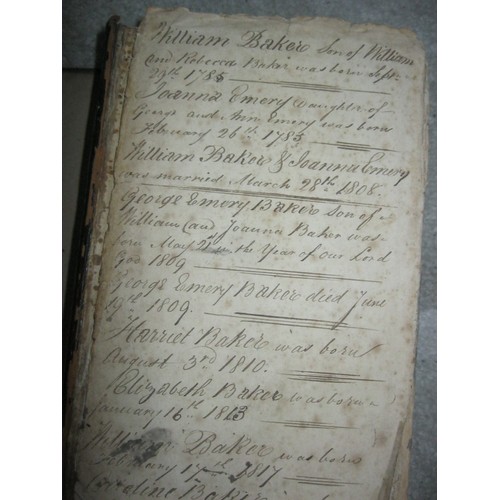 William Baker Son of William
and Rebecca Baker was born Sept.
29th 1785
Joanna Emery Daughter of
George and Ann Emery was born
February 26th 1785
William Baker & Joanna Emery
was married March 28th 1808.
George Emery Baker Son of
William and Joanna Baker was
born May in the Year of our Lord
God 1809
George Emery Baker died June
19th 1809.
Harriet Baker was born
August 3rd 1810.
Elizabeth Baker was born
January 16th 1813
William Baker was born
17th 1817
Caroline Baker